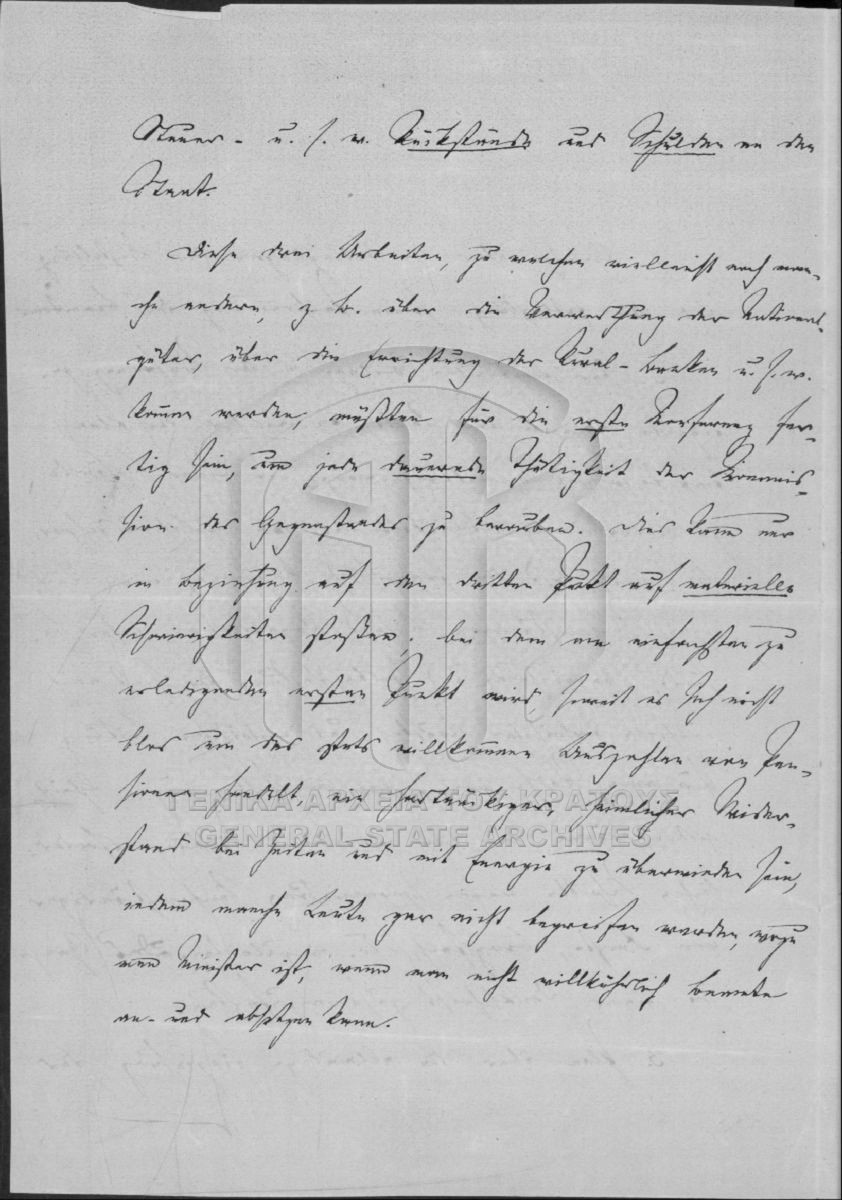 Steuer- u. s. w. Rückstände und Schulden an den
Staat.
Diese drei Arbeiten, zu welchen vielleicht noch man-
che andere, z. B. über die Verwerthung der National-
güter, über die Errichtung der Rural-Banken u. s. w.
kommen werden, müßten für die erste Konferenz fer-
tig sein, um jede dauernde Thätigkeit der Kommis-
sion des Gegenstandes zu berauben. Dies kann nur
in Beziehung auf den dritten Pukt auf materielle
Schwierigkeiten stoßen; bei dem am einfachsten zu
erledigenden ersten Punkt wird, soweit es sich nicht
blos um das stets willkommene Auszahlen von Pen-
sionen handelt, ein hartnäckiger, heimlicher Wider-
stand bei Zeiten und mit Energie zu überwinden sein,
indem manche Leute gar nicht begreifen werden, wozu
man Minister ist, wenn man nicht willkührlich Beamte
an- und absetzen kann.
ΓΕΝΙΚΑ ΑΡΧΕΙΑ ΤΟΥ ΚΡΑΤΟΥΣ
GENERAL STATE ARCHIVES